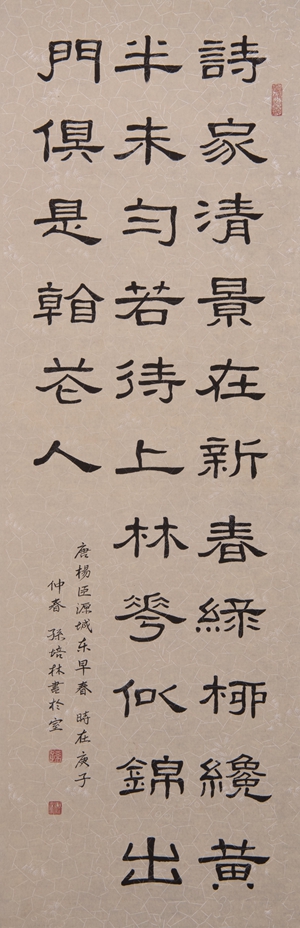 詩家清景在新春綠柳纔黃
半未勻若待上林華似錦出
門俱是看花人
唐楊巨源城东早春 時在庚子
仲春 孫培林書於室